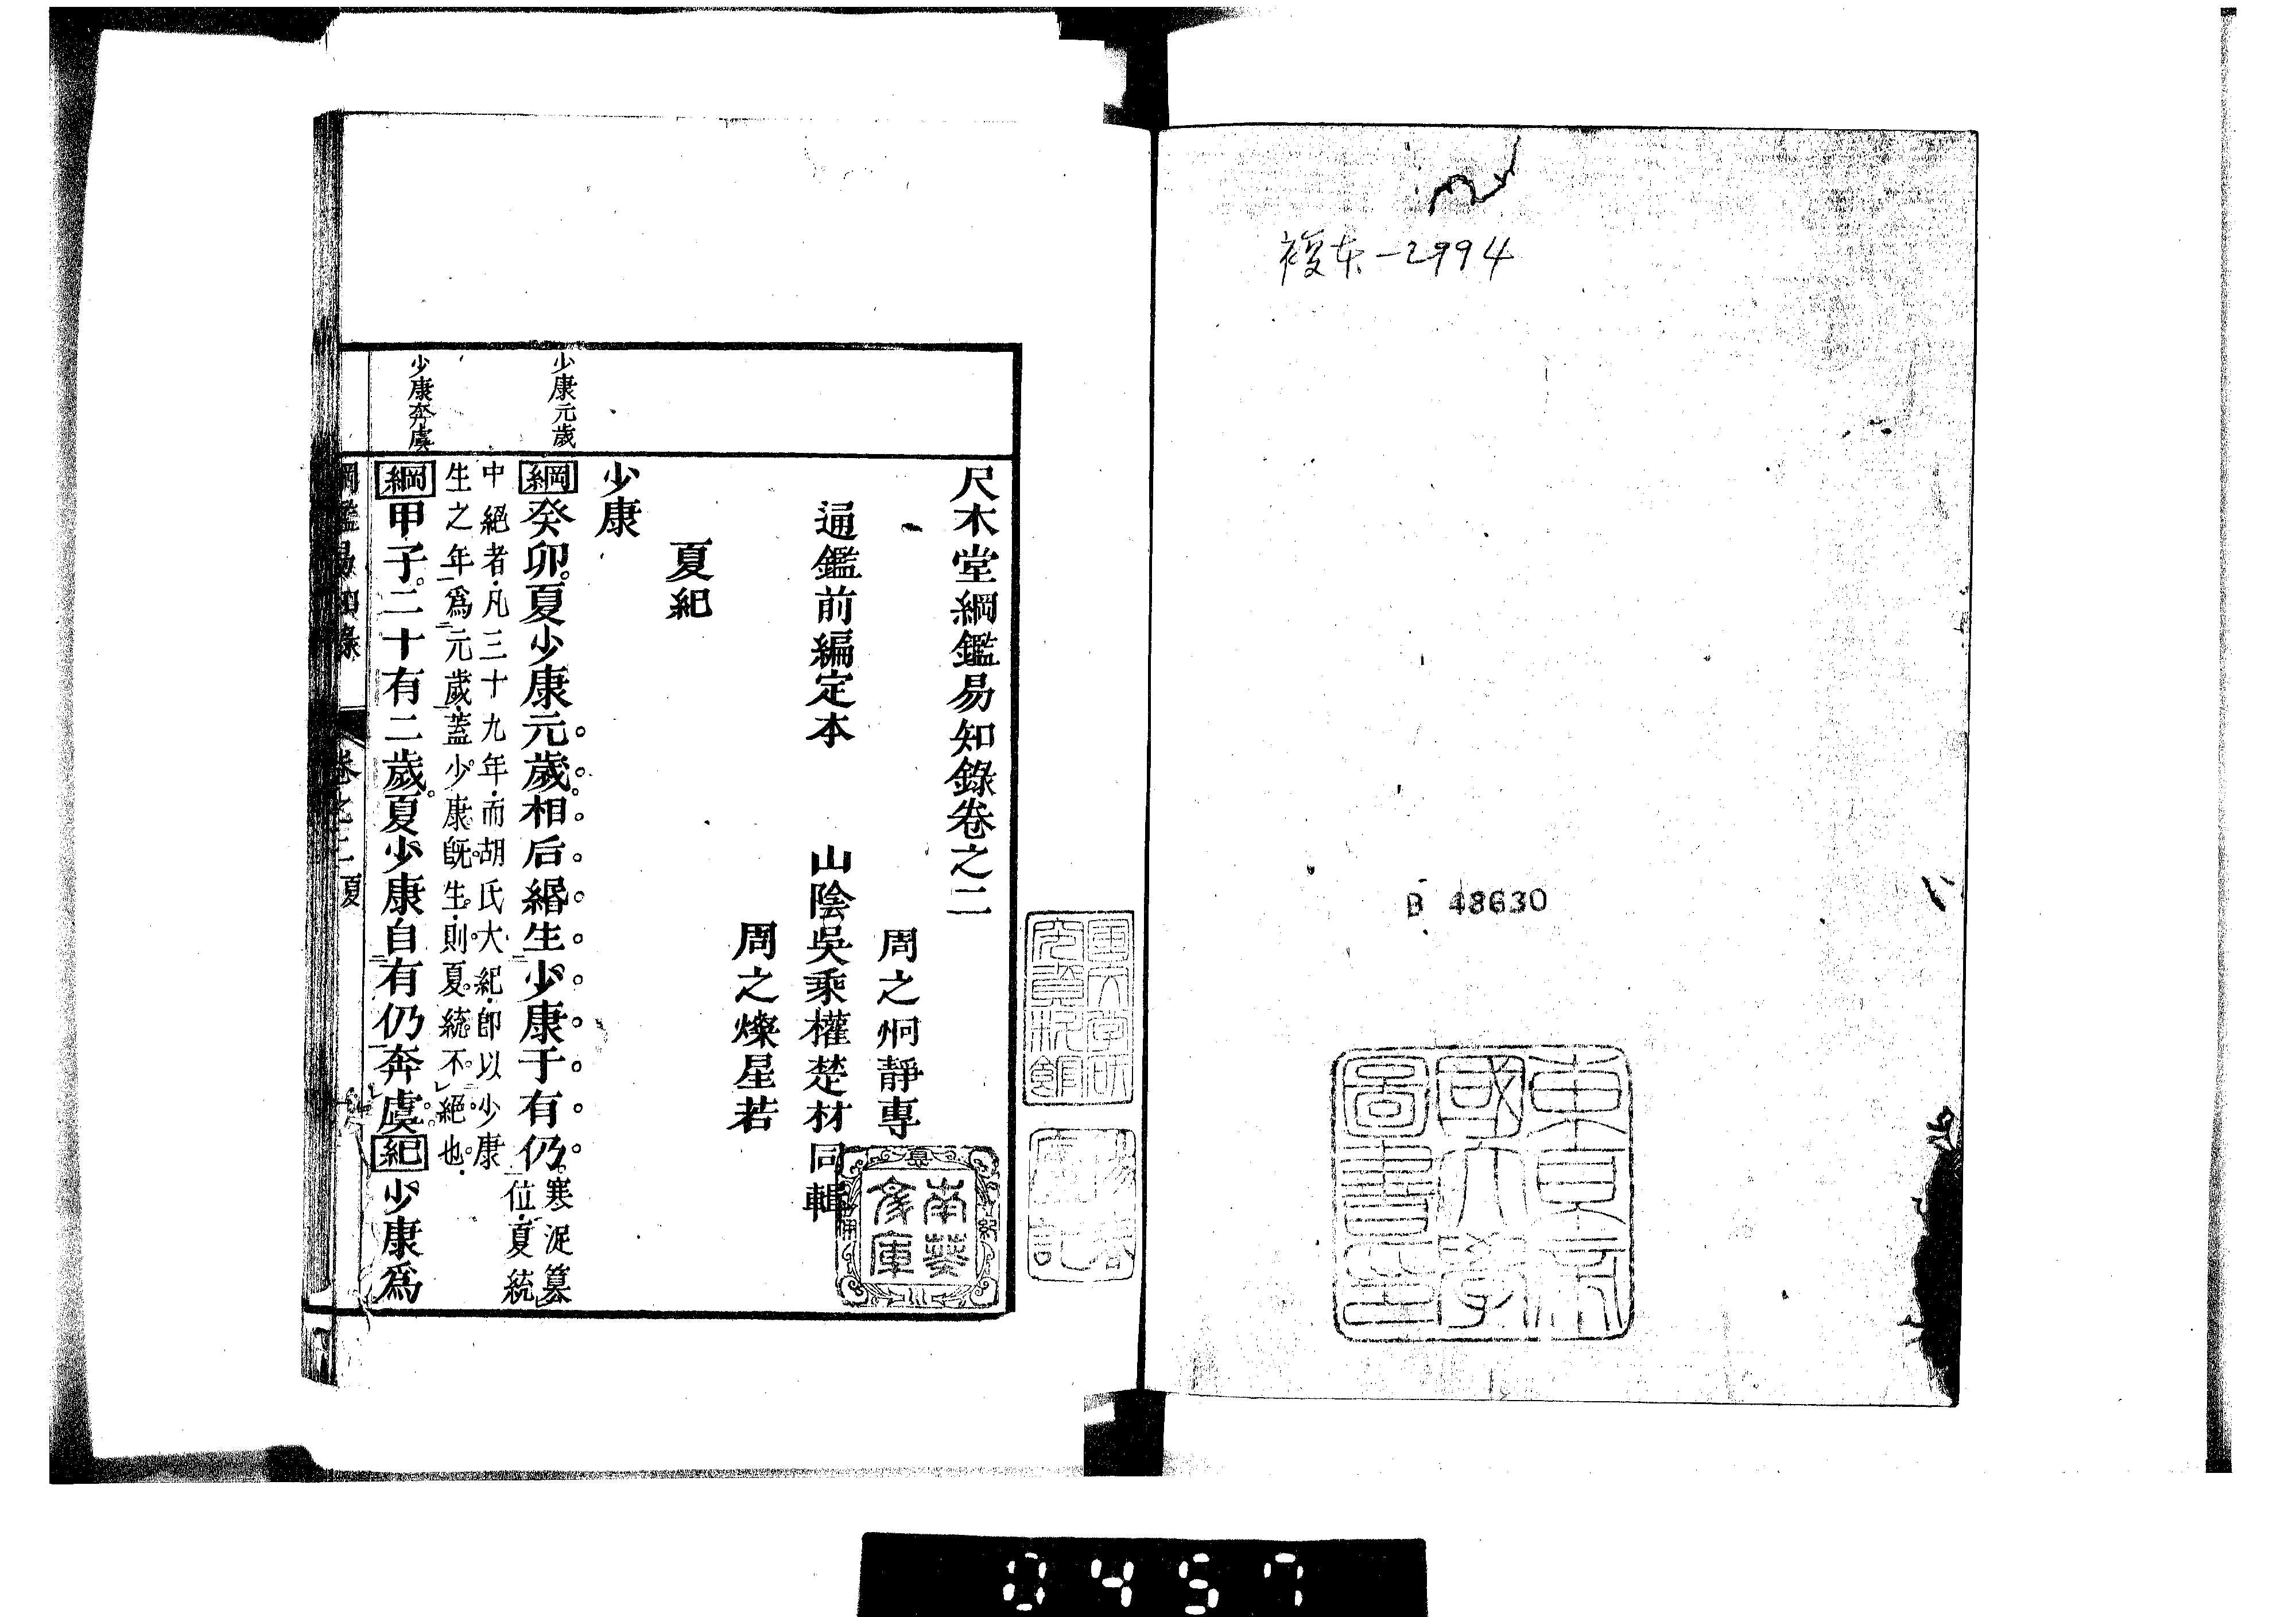 複本-2994
B 48630
東京
國大學
圖書芷
南葵
文庫
尺木堂綱鑑易知錄卷之二
周之炯靜專
通鑑前編定本 山陰吳乘權楚材同輯
周之燦星若
夏紀
少康
少康元歲
綱癸卯夏少康元歲相后緡生少康于有仍寒浞簒
位夏統
中絕者凡三十九年而胡氏大紀卽以少康
生之年爲元歲蓋少康旣生則夏統不絕也
少康奔虞
綱甲子二十有二歲夏少康自有仍奔虞紀少康爲
綱鑑易知錄 卷之二 夏
0457